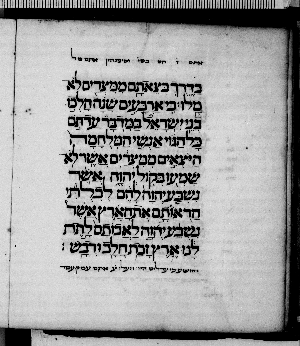 בדרך בצאתם ממצרים לא
מלו: כי ארבעים שנה הלכו
בני ישראל במדבר עד תם
כל הגוי אנשי המלחמה
היצאים ממצרים אשר לא
שמעו בקול יהוה אשר
נשבע יהוה להם לבלתי
הראותם את הארץ אשר
נשבע יהוה לאבותם לתת
לנו ארץ זבת חלב ודבש: